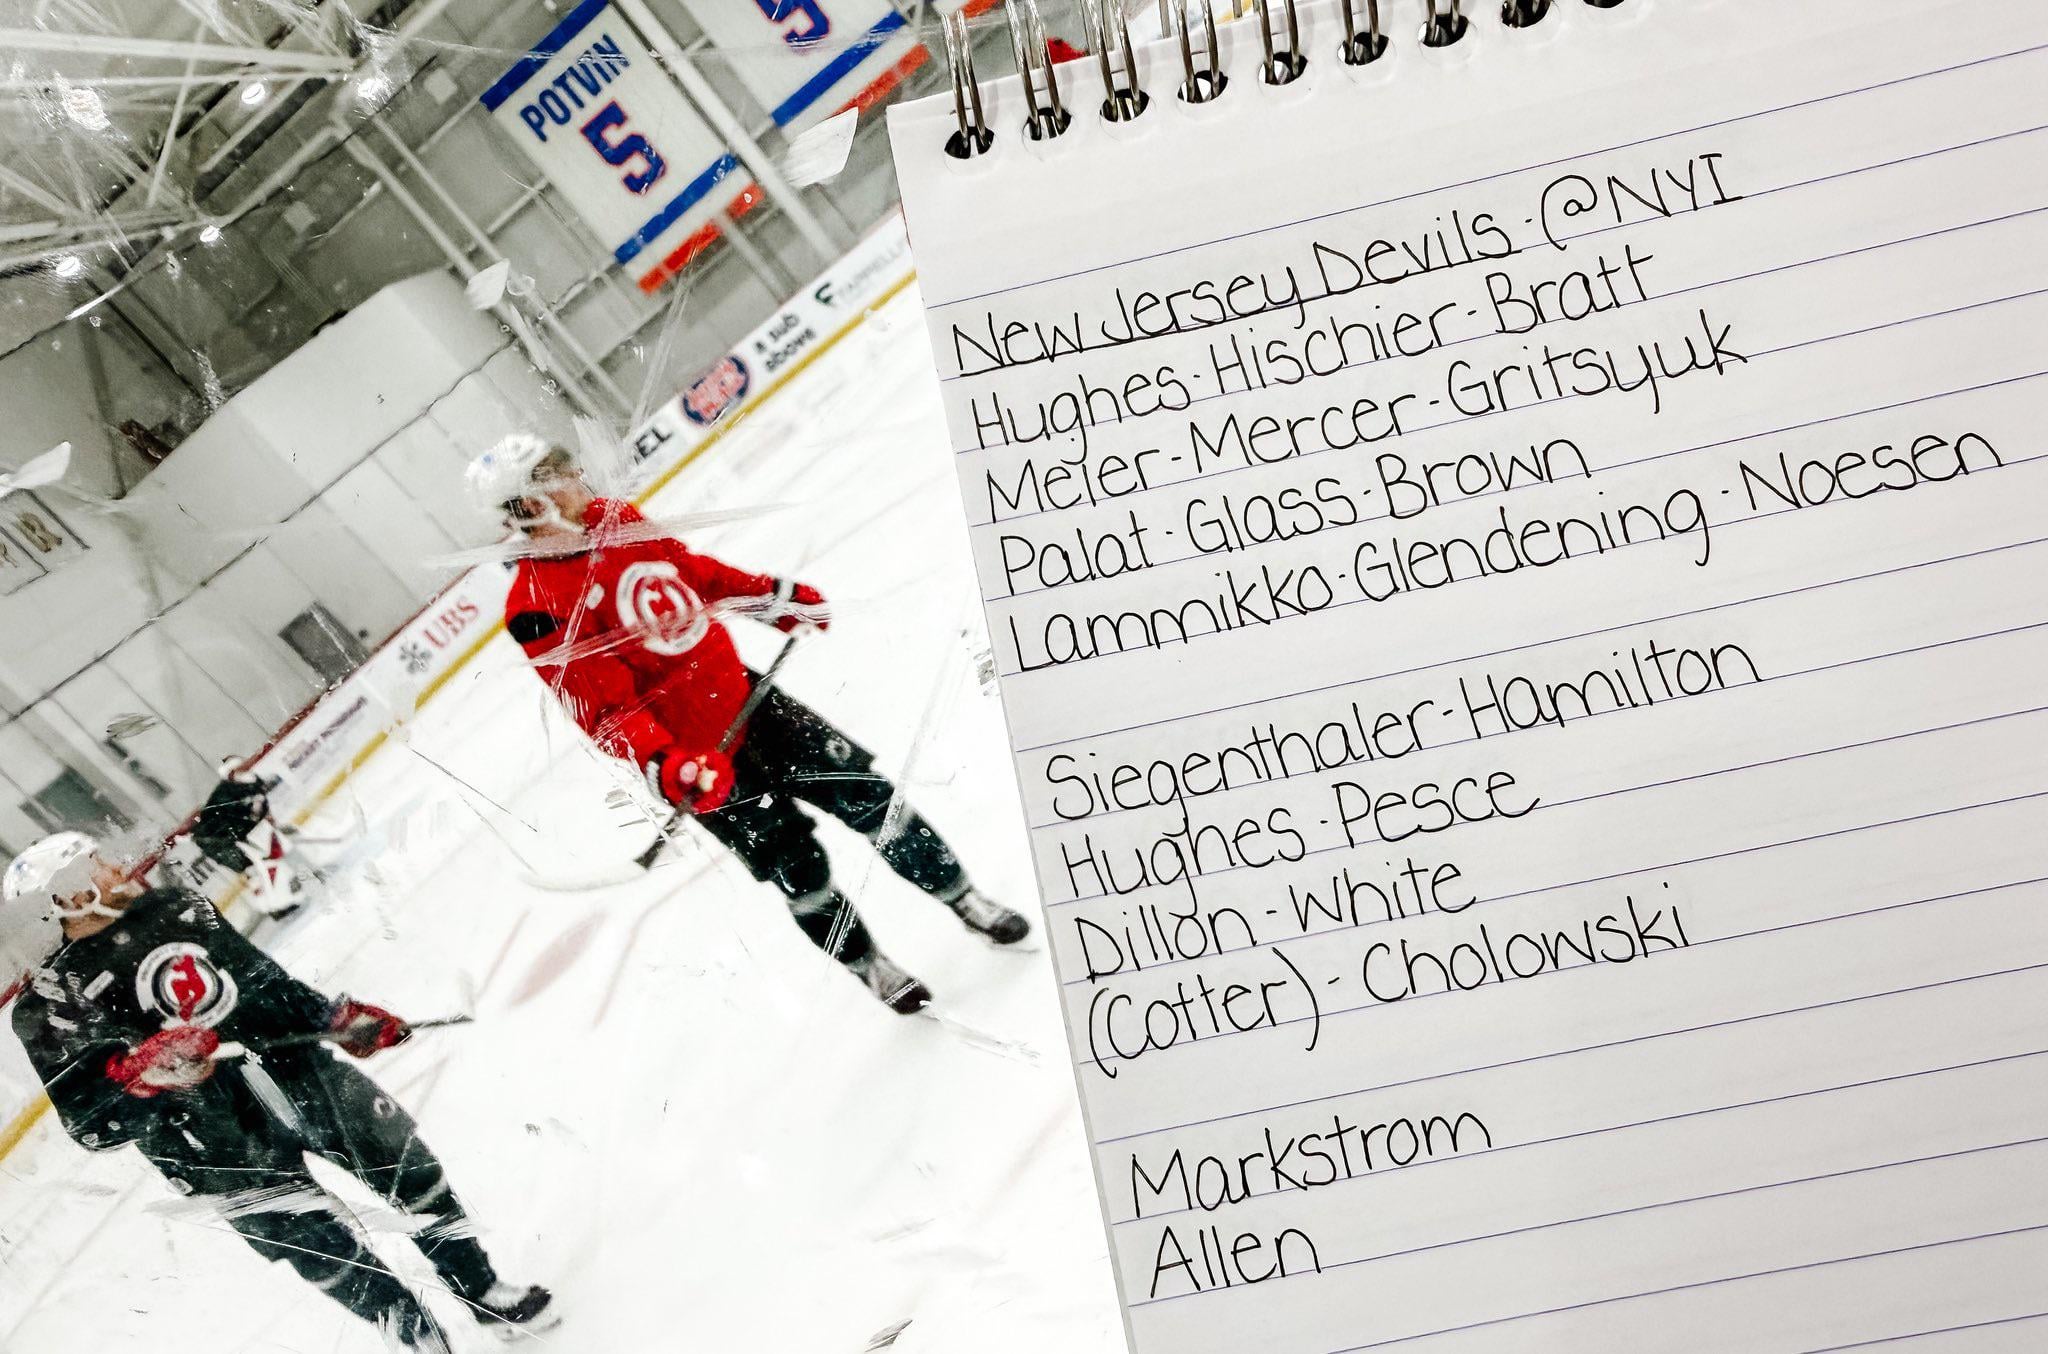 POTVIN
5
5
TAPPELLA
a sub
above
EL
UBS
New Jersey Devils · @NYI
Hughes · Hischier · Bratt
Meier · Mercer · Gritsyuk
Palat · Glass · Brown
Lammikko · Glendening · Noesen
Siegenthaler · Hamilton
Hughes · Pesce
Dillon · White
(Cotter) · Cholowski
Markstrom
Allen